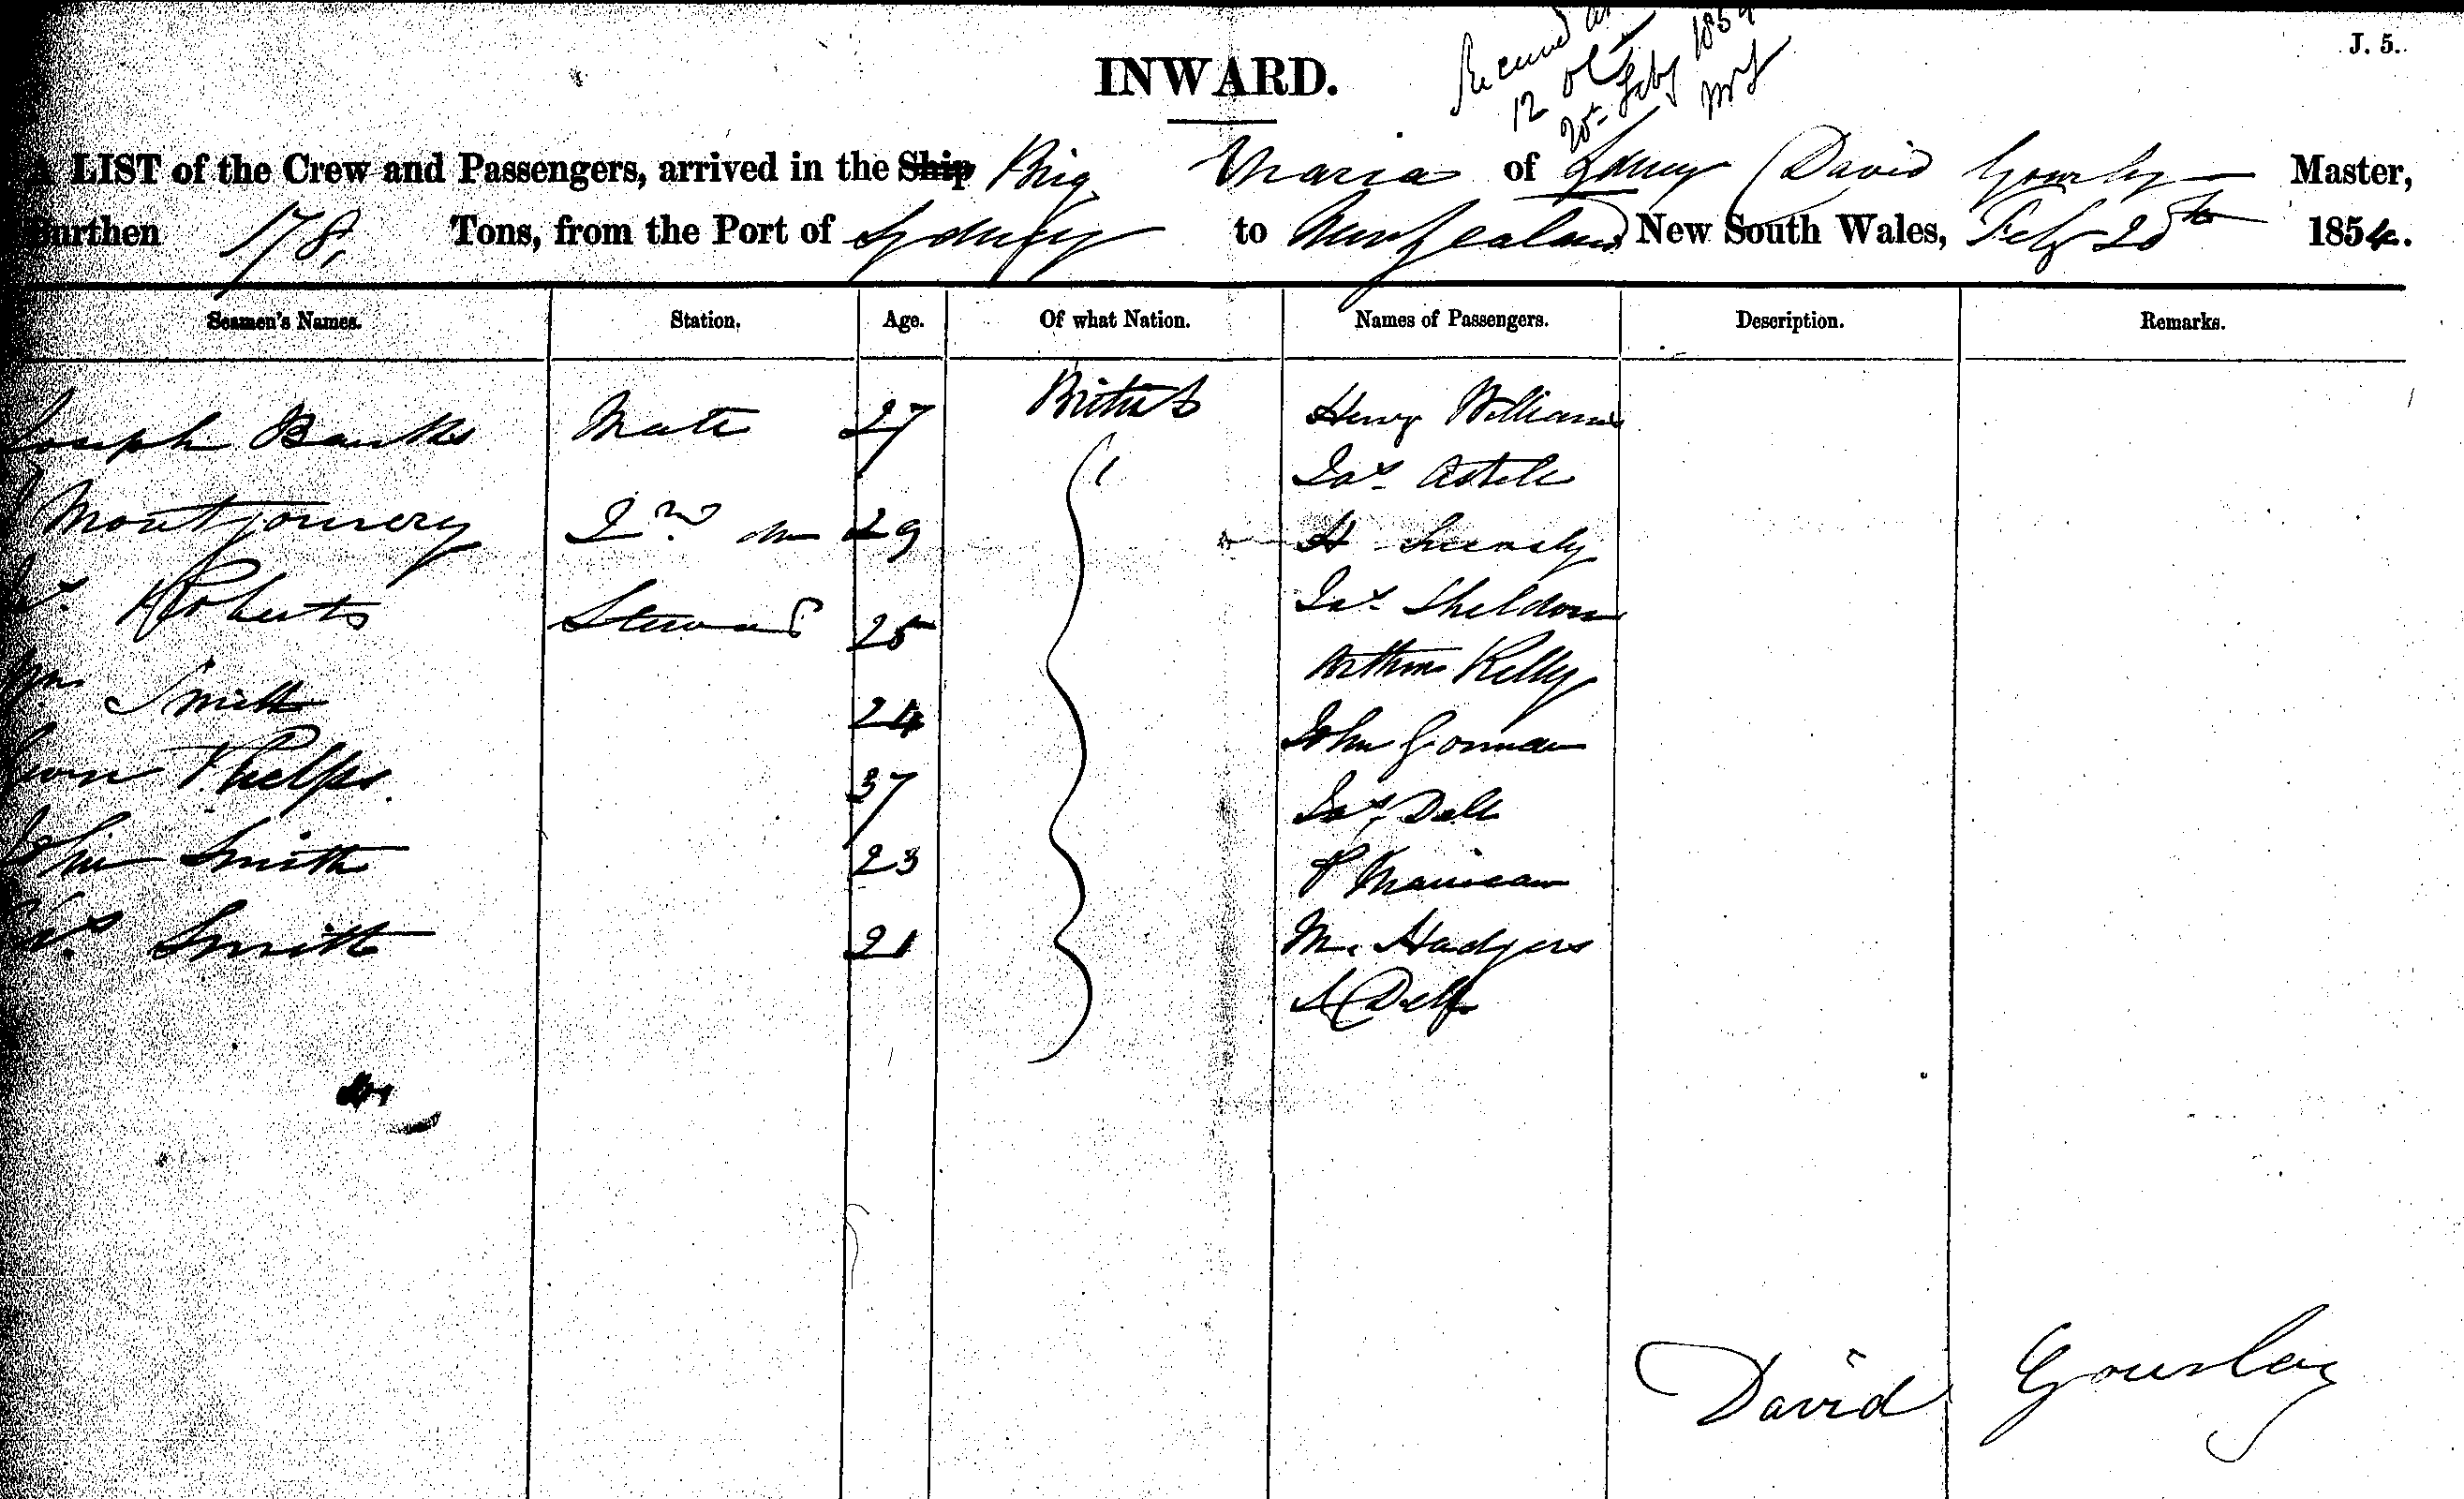 J. 5.
INWARD.
12 oC
20th Feby 1854
A LIST of the Crew and Passengers, arrived in the Ship Brig Maria of Sydney David Gourlay Master,
Burthen 178, Tons, from the Port of Sydney to New Zealand New South Wales, Feby 20th 1854.
Seamen's Names. Station. Age. Of what Nation. Names of Passengers. Description. Remarks.
Joseph Banks Mate 27 British Henry Williams
Jas Astell
Montgomery 2nd do 29 H
Jas Sheldon
Roberts Steward 25
Arthur Kelly
Wm Smith 24
John Gorman
Phelps 37
Jas Dell
John Smith 23
P
Jas Smith 21 M. Hadgers
A Dell
David Gourlay